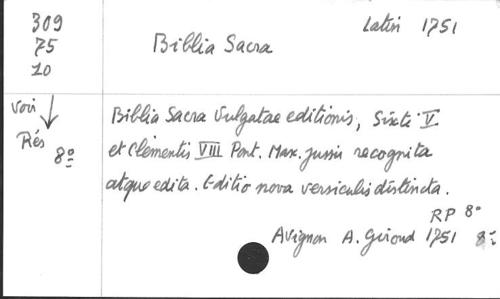 309
75
10
Latin 1751
Biblia Sacra
voir
Rés
8º
Biblia Sacra Vulgatae editionis, Sixti V
et Clementis VIII Pont. Max. jussu recognita
atque edita. Editio nova versiculis distincta.
RP 8º
Avignon A. Giroud 1751 8º